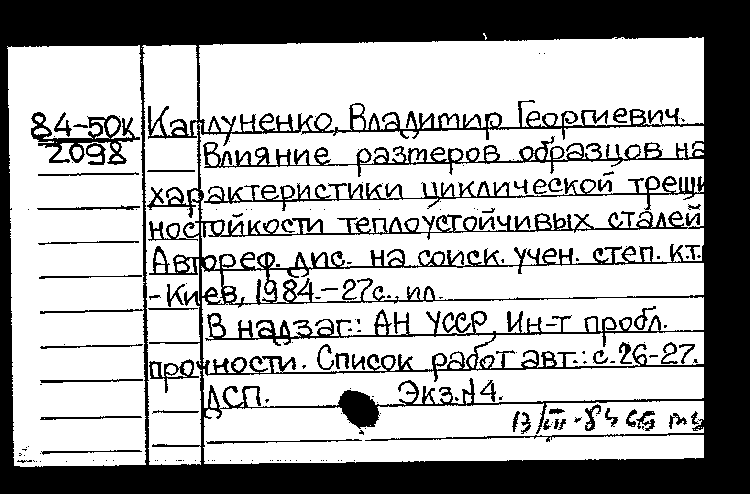 84-50к Каплуненко, Владимир Георгиевич.
2098 Влияние размеров образцов на
характеристики циклической трещи
ностойкости теплоустойчивых сталей
Автореф. дис. на соиск. учен. степ. к.т.
-Киев, 1984.-27с., ил.
В надзаг.: АН УССР, Ин-т пробл.
прочности. Список работ авт.: с.26-27.
ДСП. Экз.№4.
13/III-84